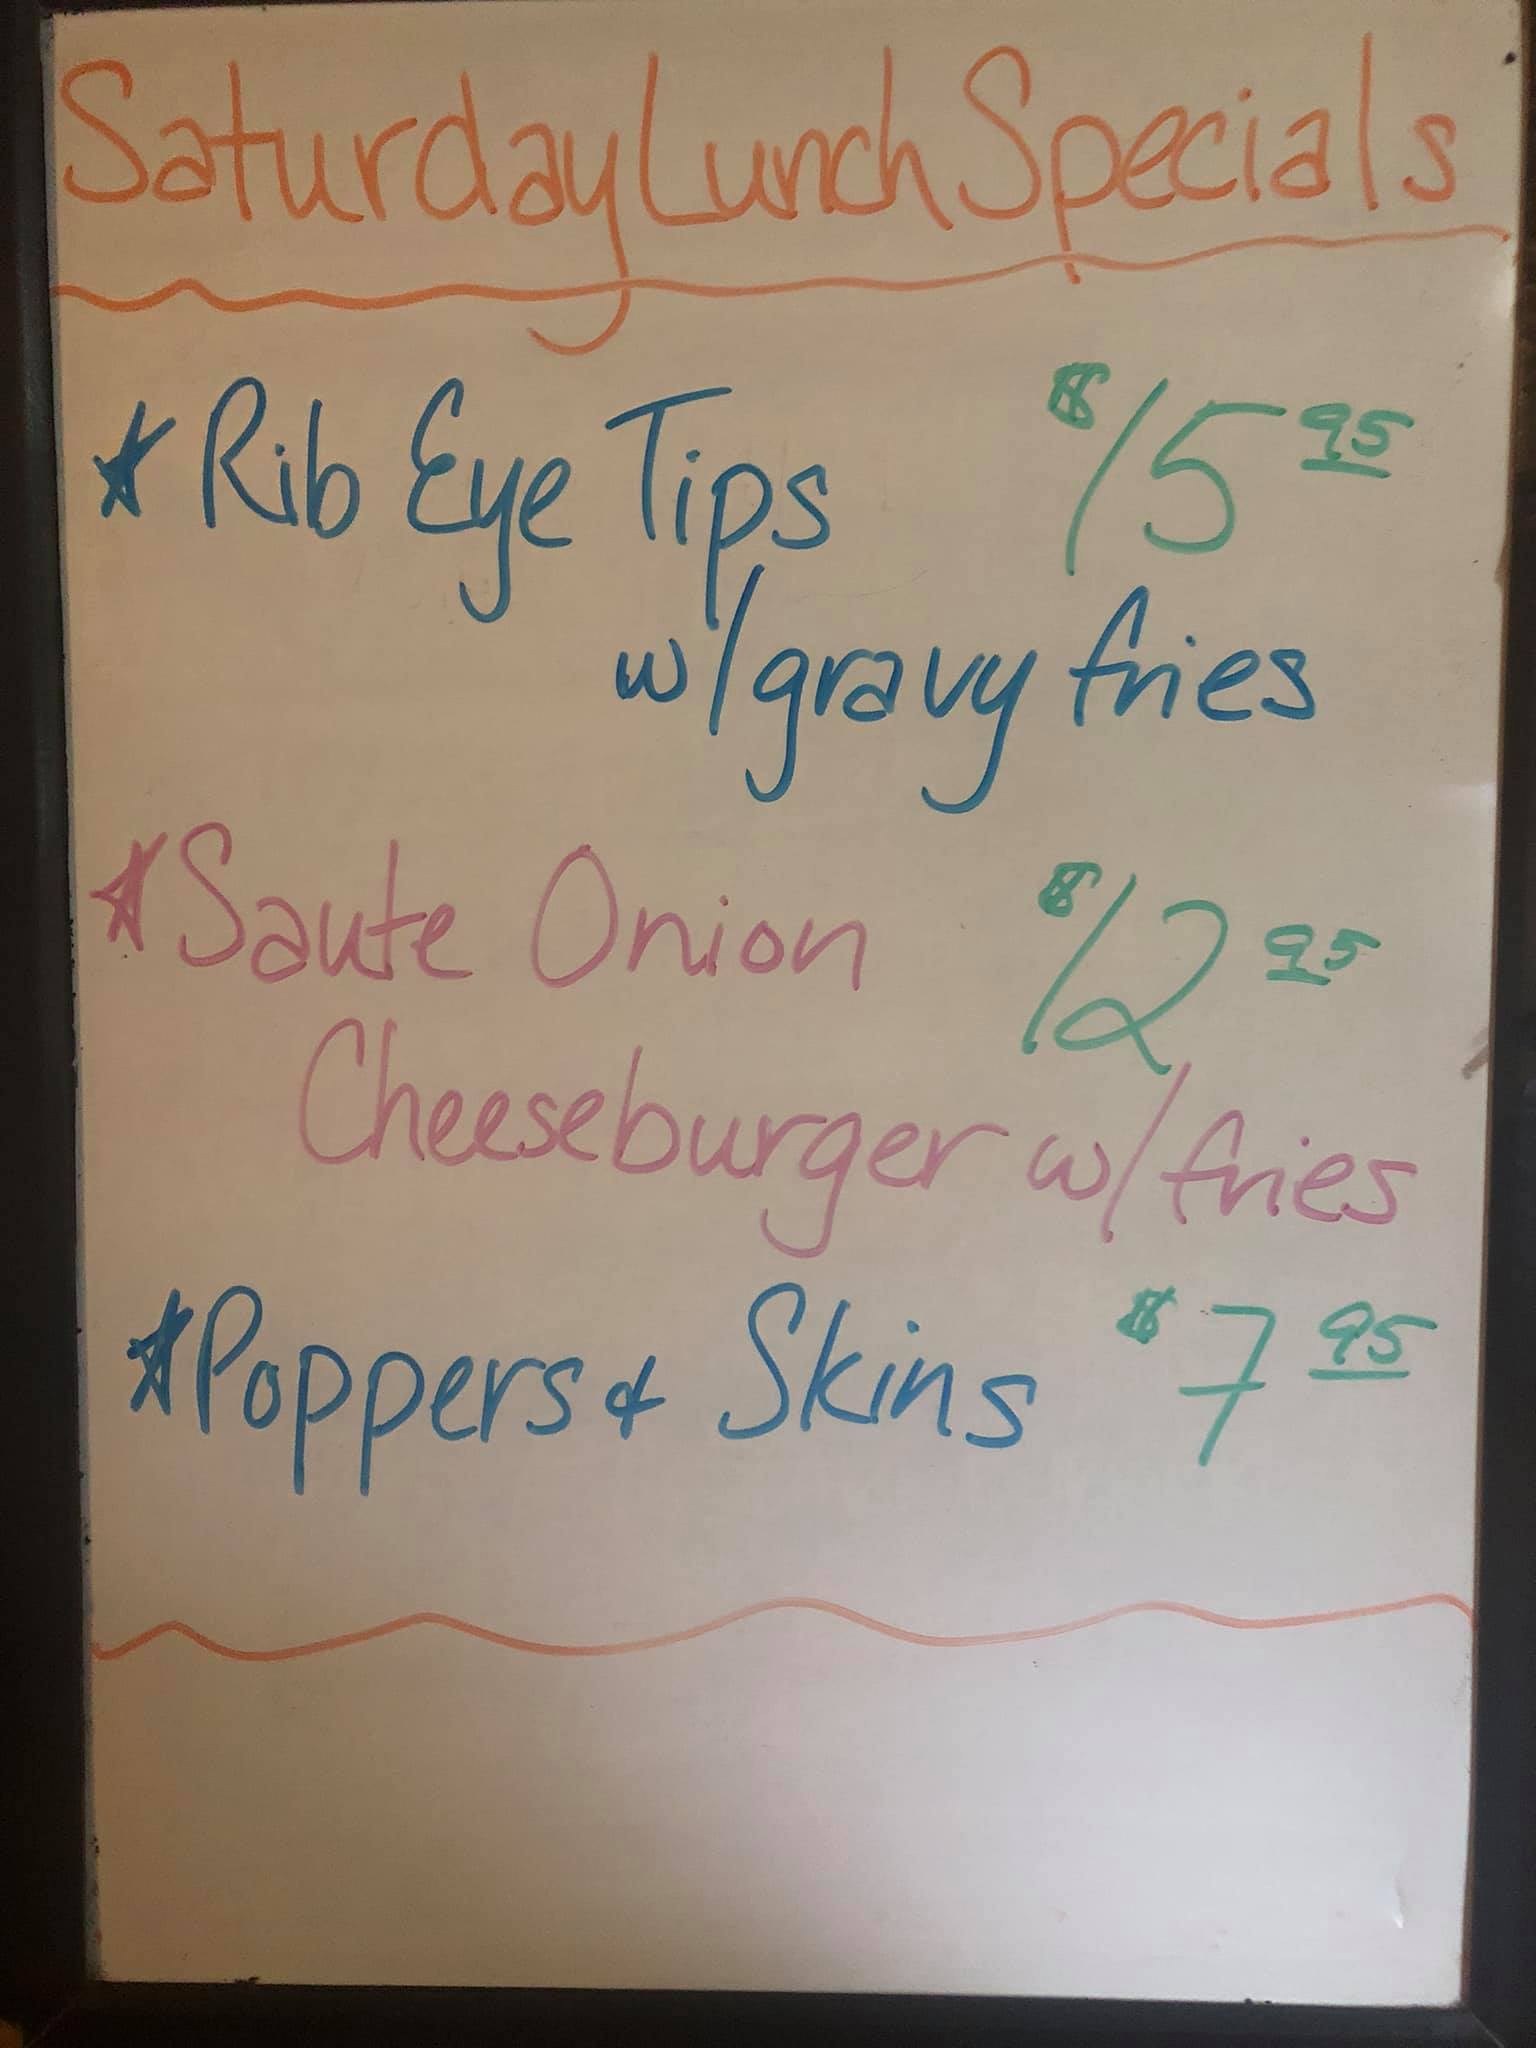 Saturday Lunch Specials
★ Rib Eye Tips $15 95
w/gravy fries
★ Saute Onion $12 95
Cheeseburger w/fries
★ Poppers & Skins $7 95